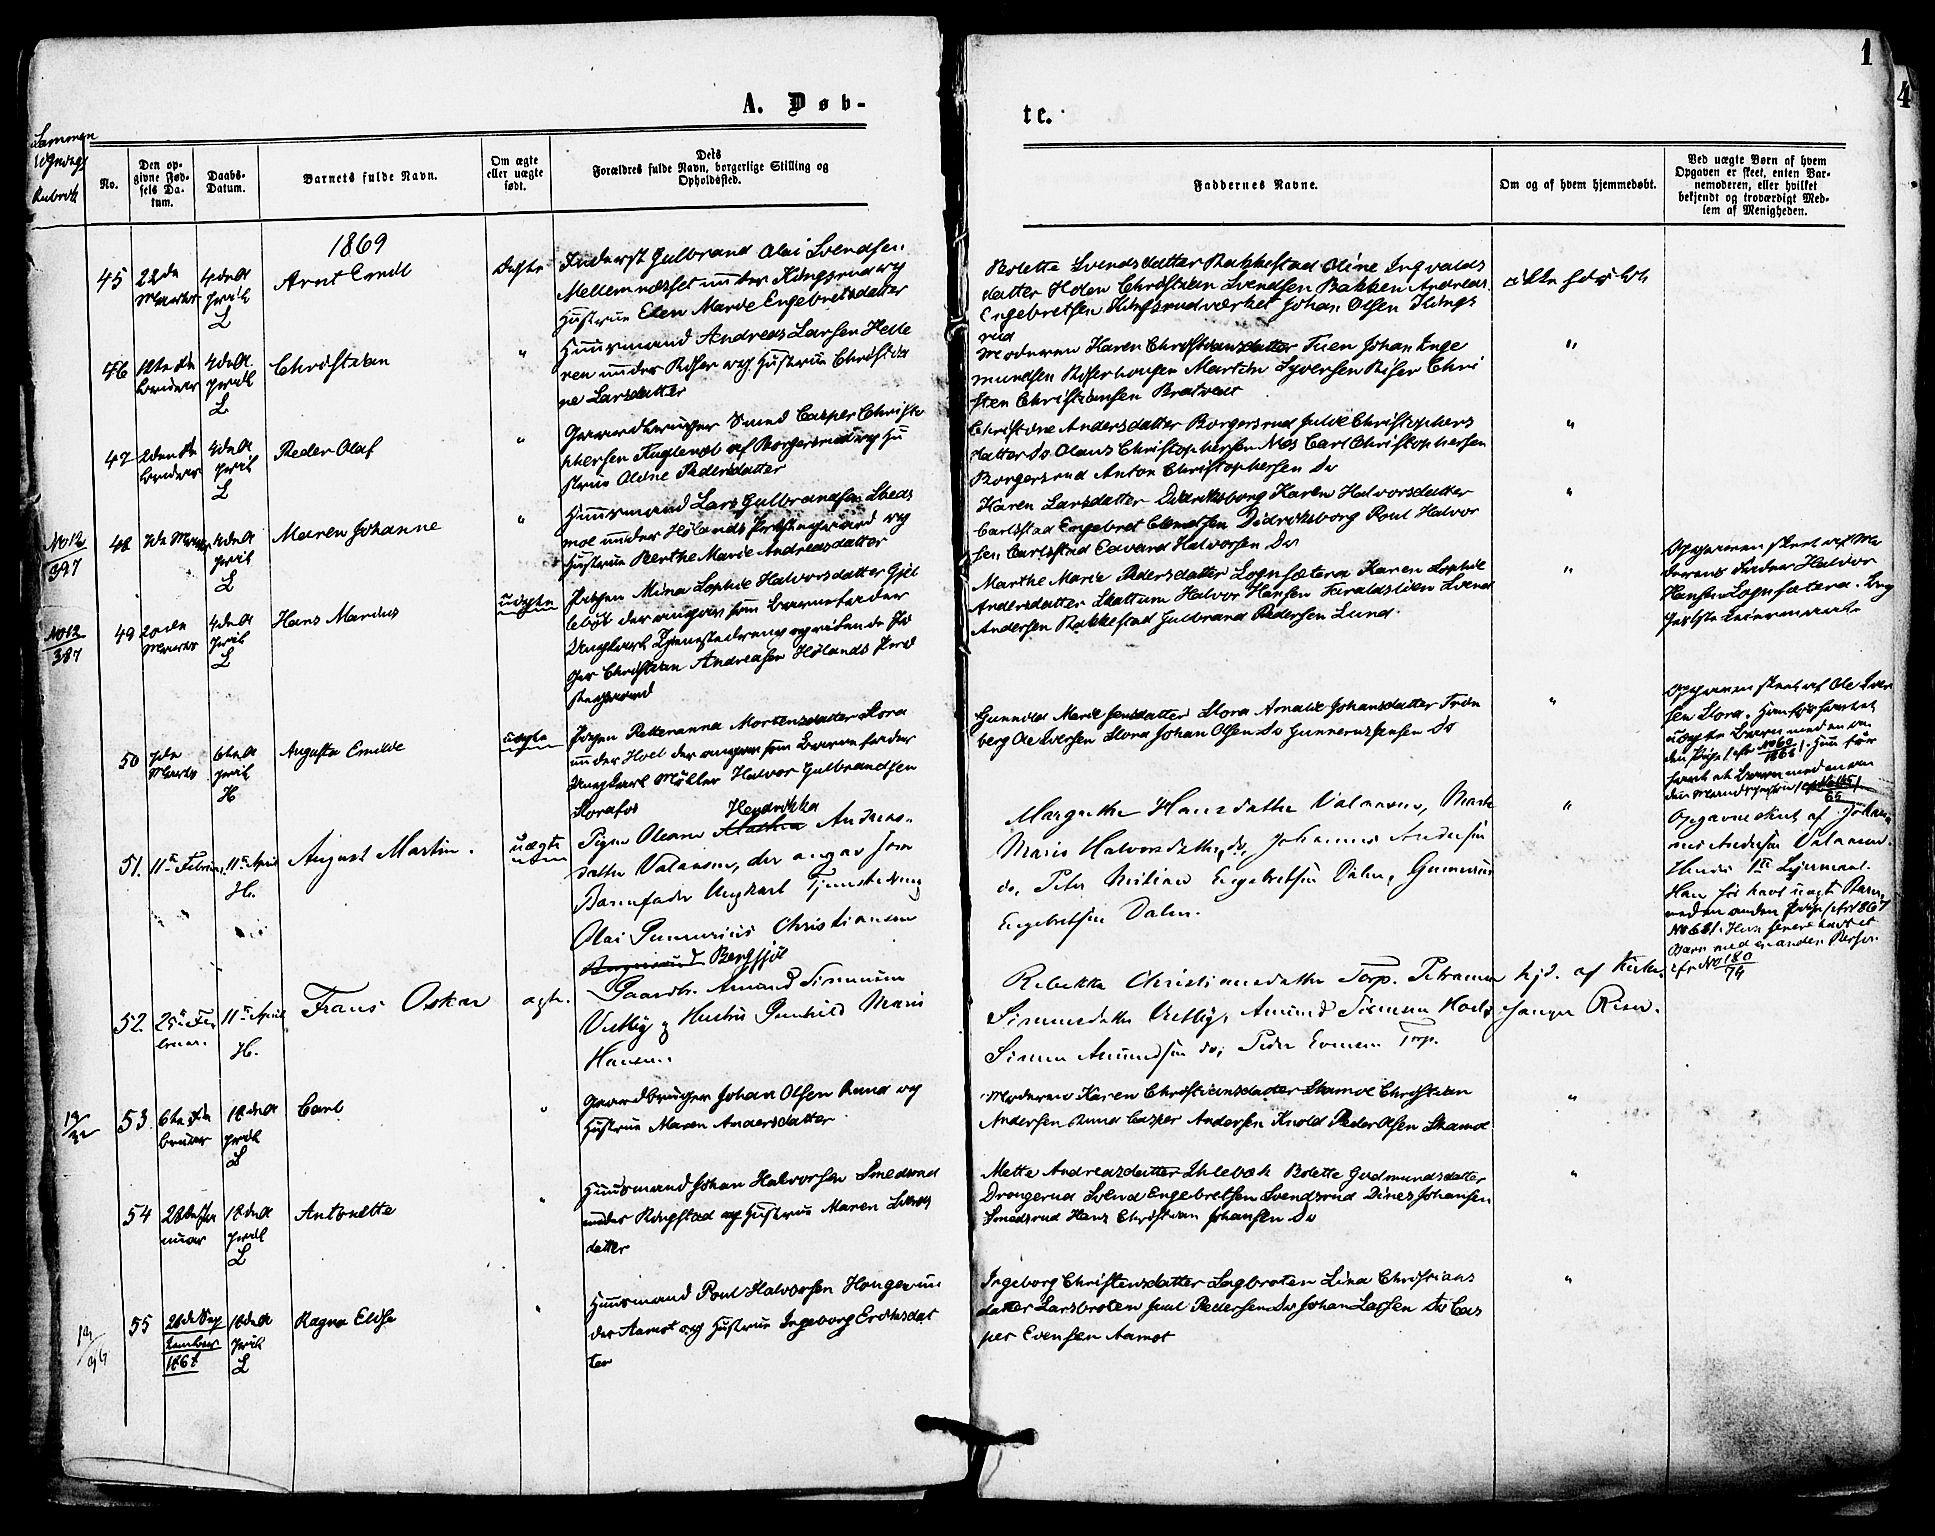 A. Døb-
te.
1
4
No.
Den op-
givne Fød-
sels Da-
tum.
Daabs-
Datum.
Barnets fulde Navn.
Om ægte
eller uægte
født.
Dets
Forældres fulde Navn, borgerlige Stilling og
Opholdssted.
Faddernes Navne.
Om og af hvem hjemmedøbt.
Ved uægte Børn af hvem
Opgaven er skeet, enten Bar-
nemoderen, eller hvilket
bekjendt og troværdigt Med-
lem af Menigheden.
1869
45
22de
Marts
4de A
pril
L
Arnt Emil
Ægte
Inderst Gulbrand Olai Svendsen
Mellemnæsset under Kingsrud og
Hustrue Elen Marie Engebretsdatter
Bolette Svendsdatter Rakkestad Oline Ingvalds
datter Holen Christian Svendsen Bakken Andreas
Engebretsen Kingsrudværket Johan Olsen Kings
rud
ikke hjdøbt
46
4de A
pril
L
Christian
"
Huusmand Andreas Larsen Helle
ren under Riser og Hustrue Christi
ne Larsdatter
Moderen Karen Christiansdatter Tuen Johan Enge
mundsen Riserhougen Martin Syversen Riser Chri
sten Christiansen Bratvedt
"
47
2den Fe
bruar
4de A
pril
L
Peder Olaf
"
Gaardbruger Smed Casper Christo
phersen Fuglenæb af Borgersrud og Hu
strue Oline Pedersdatter
Christine Andersdatter Borgersrud Julie Christophers
datter Do Olaus Christophersen Nes Carl Christophersen
Borgersrud Anton Christophersen Do
"
No 12
397
48
7de Marts
4de A
pril
L
Maren Johanne
"
Huusmand Lars Gulbrandsen
moe under Hølands Præstegaard og
Hustrue Berthe Marie Andreasdatter
Karen Larsdatter Didriksborg Karen Halvorsdatter
Carlsstad Engebret Clemetsen Didriksborg Poul Halvor
sen Carlsstad Edvard Halvorsen Do
"
No 12
387
49
20de
Marts
4de A
pril
L
Hans Marius
uægte
Pigen Mina Sophie Halvorsdatter Gjel
lebøl der angav som Barnefader
Ungkarl Tjenestedreng og ridende Po
ger Christian Andreasen Hølands Præ
stegaard
Marthe Marie Pedersdatter Sognsætera Karen Sophie
Andersdatter Skattum Halvor Hansen Haraldslien Svend
Andersen Rakkestad Gulbrand Pedersen Lund
"
Opgaven skeet af Mo
derens Fader Halvor
Hansen Sognsætera. Beg
ges 1ste Leiermaale
50
7de
Marts
6te A
pril
H
Augusta Emilie
uægte
Pigen Petteranna Mortensdatter Slora
under Hoel der angav som Barnefader
Ungkarl Møller Halvor Gulbrandsen
Slorafos
Gunnild Marie Jensdatter Slora Amalie Johansdatter Tron
berg Ole Iversen Slora Johan Olsen Do Gunnerius Jensen Do
"
Opgaven skeet af Ole Iver
sen Slora. Han før havt et
uægte Barn med en an
den Pige
No 60
1868
Hun før
havt et Barn med en an
den
51.
11te Februar
11te April
H.
August Martin.
uægte
Pigen Oleane Hendrikka Andreas-
datter Valansen, der angav som
Barnefader Ungkarl Tjenestedreng
Olai Gunnerius Christiansen
Bergsjøl
Margrethe Hansdatter Valansen, Berthe
Marie Halvorsdatter do, Johannes Andersen
do, Peter Kristian Engebretsen Dalen, Gunnerius
Engebretsen Dalen.
"
Opgaven skeet af Johan
nes Andersen Valansen.
Hendes 1ste Lejermaal.
Han før havt uægt Barn
med en anden Pige 1867
No 68. Hun senere havt et
Barn med en anden Person
cfr No 180
74
52.
25de Fe
bruar.
11te April
H.
Frans Oskar
ægte.
Gaardbr. Amund Simensen
Vestby og Hustru Gunhild Marie
Hansen.
Rebekka Christiansdatter Torp. Petrana
Simensdatter Vestby, Amund Simensen
Simen Amundsen do, Peder Evensen Torp.
hjd. af Kirke
sanger Riser.
53
6te Fe
bruar
18de A
pril
Carl
"
Gaardbruger Johan Olsen Rund og
Hustrue Maren Andersdatter
Moderen Karen Christiansdatter Skamol Christian
Andersen Rund Casper Andersen Knold Peder Olsen Skamol
"
54
nuar
18de A
pril
L
Antonette
"
Huusmand Johan Halvorsen Smedsrud
under Ringstad og Hustrue Maren
datter
Mette Andreasdatter Ihlebæk Bolette Gudmundsdatter
Drangerud Svend Engebretsen Svendsrud Dines Johansen
Smedsrud Hans Christian Johansen Do
"
12
96
55
28de Sep
tember
1868
18de A
pril
L
Ragna Elise
"
Huusmand Poul Halvorsen Hougen un
der Aamot og Hustrue Ingeborg Eriksdat
ter
Ingeborg Christensdatter Sagbroten Lina Christians
datter Larsbroten Juul Pedersen Do Johan Larsen Do Cas
per Evensen Aamot
"